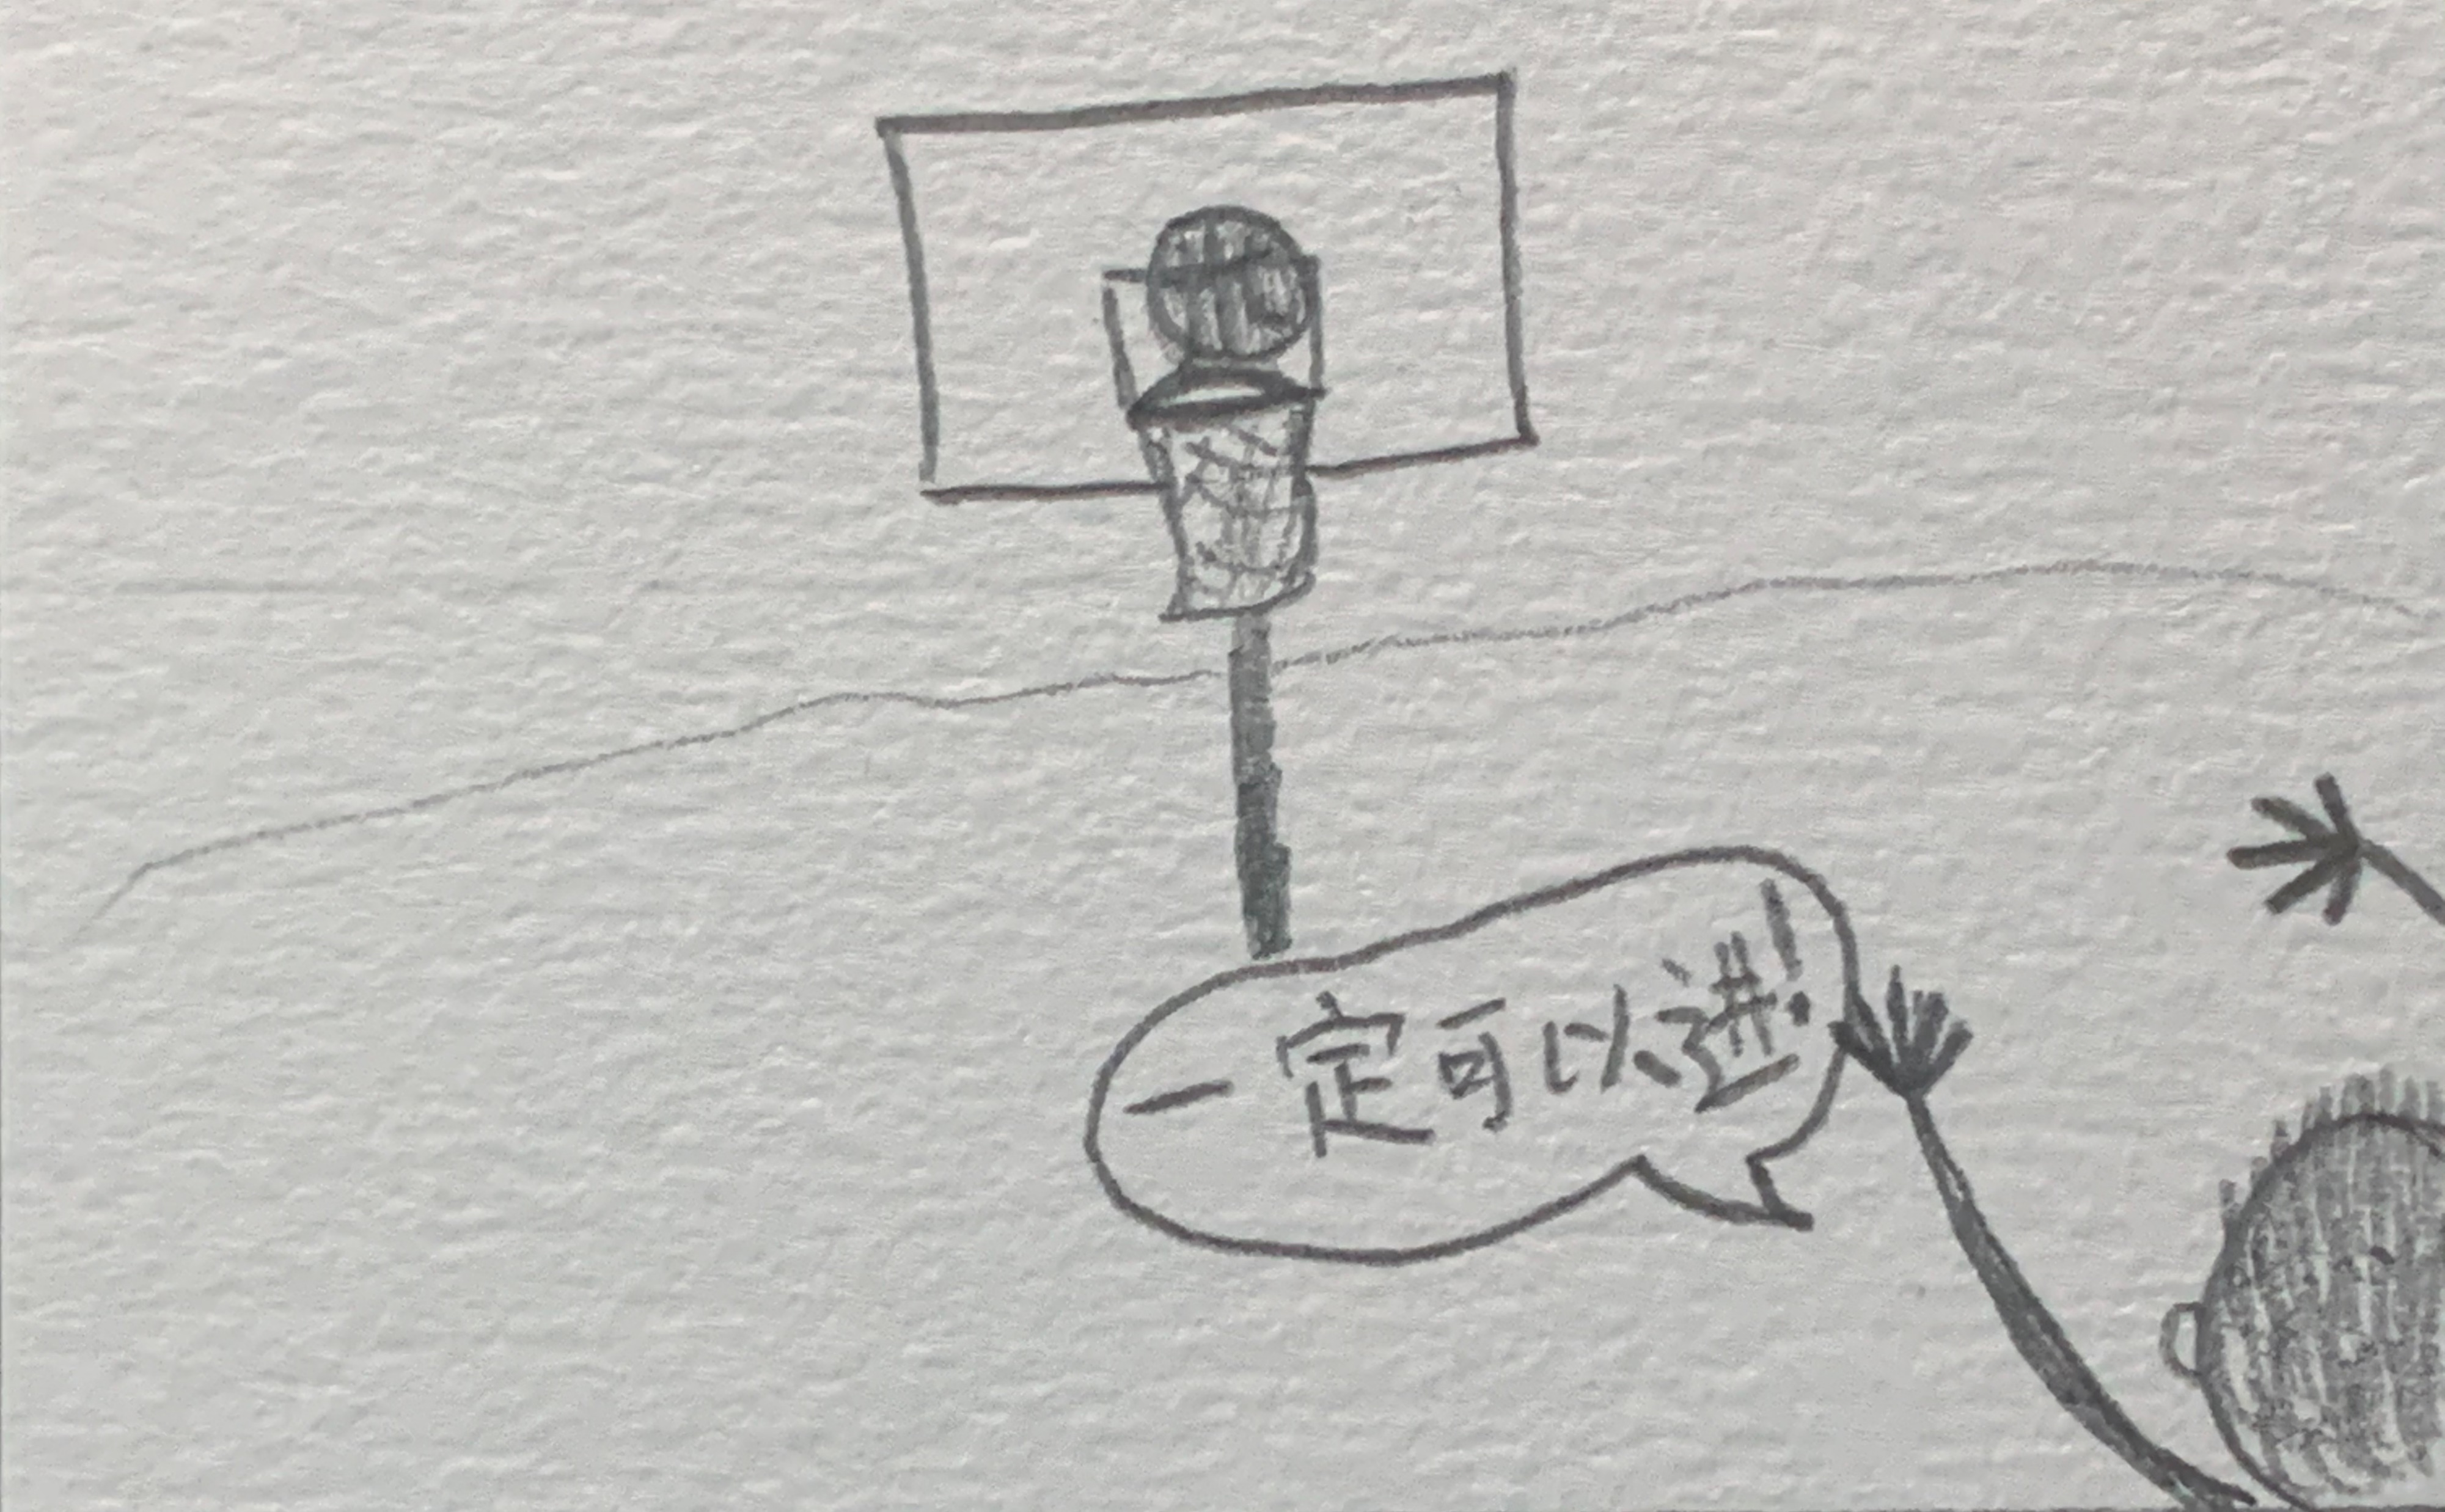 一定可以进!